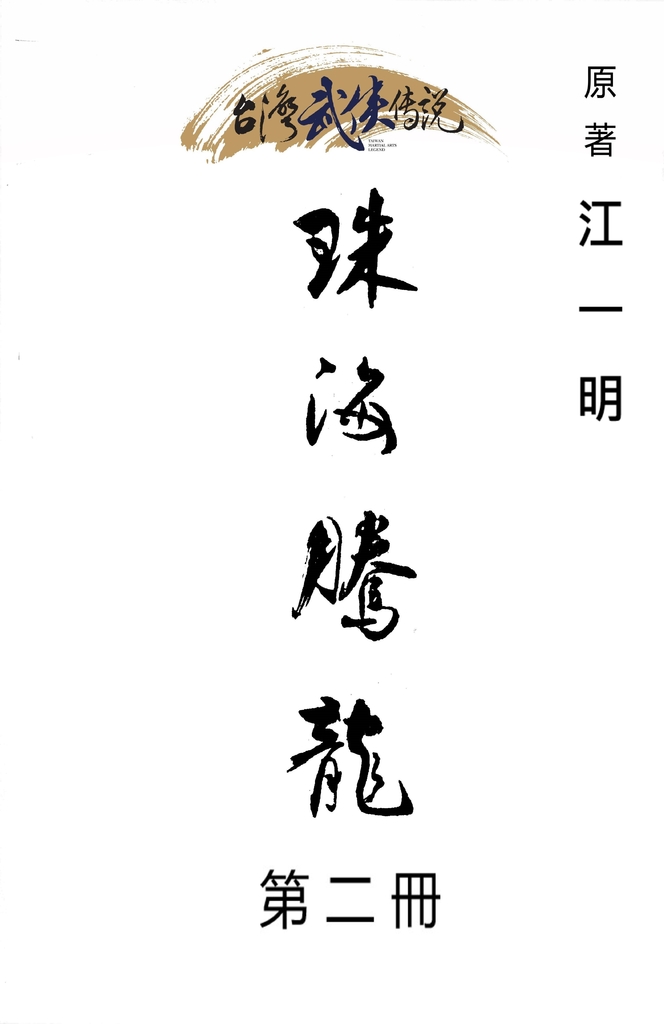 台灣武俠传説
TAIWAN
MARTIAL ARTS
LEGEND
原著 江一明
珠海騰龍
第二冊